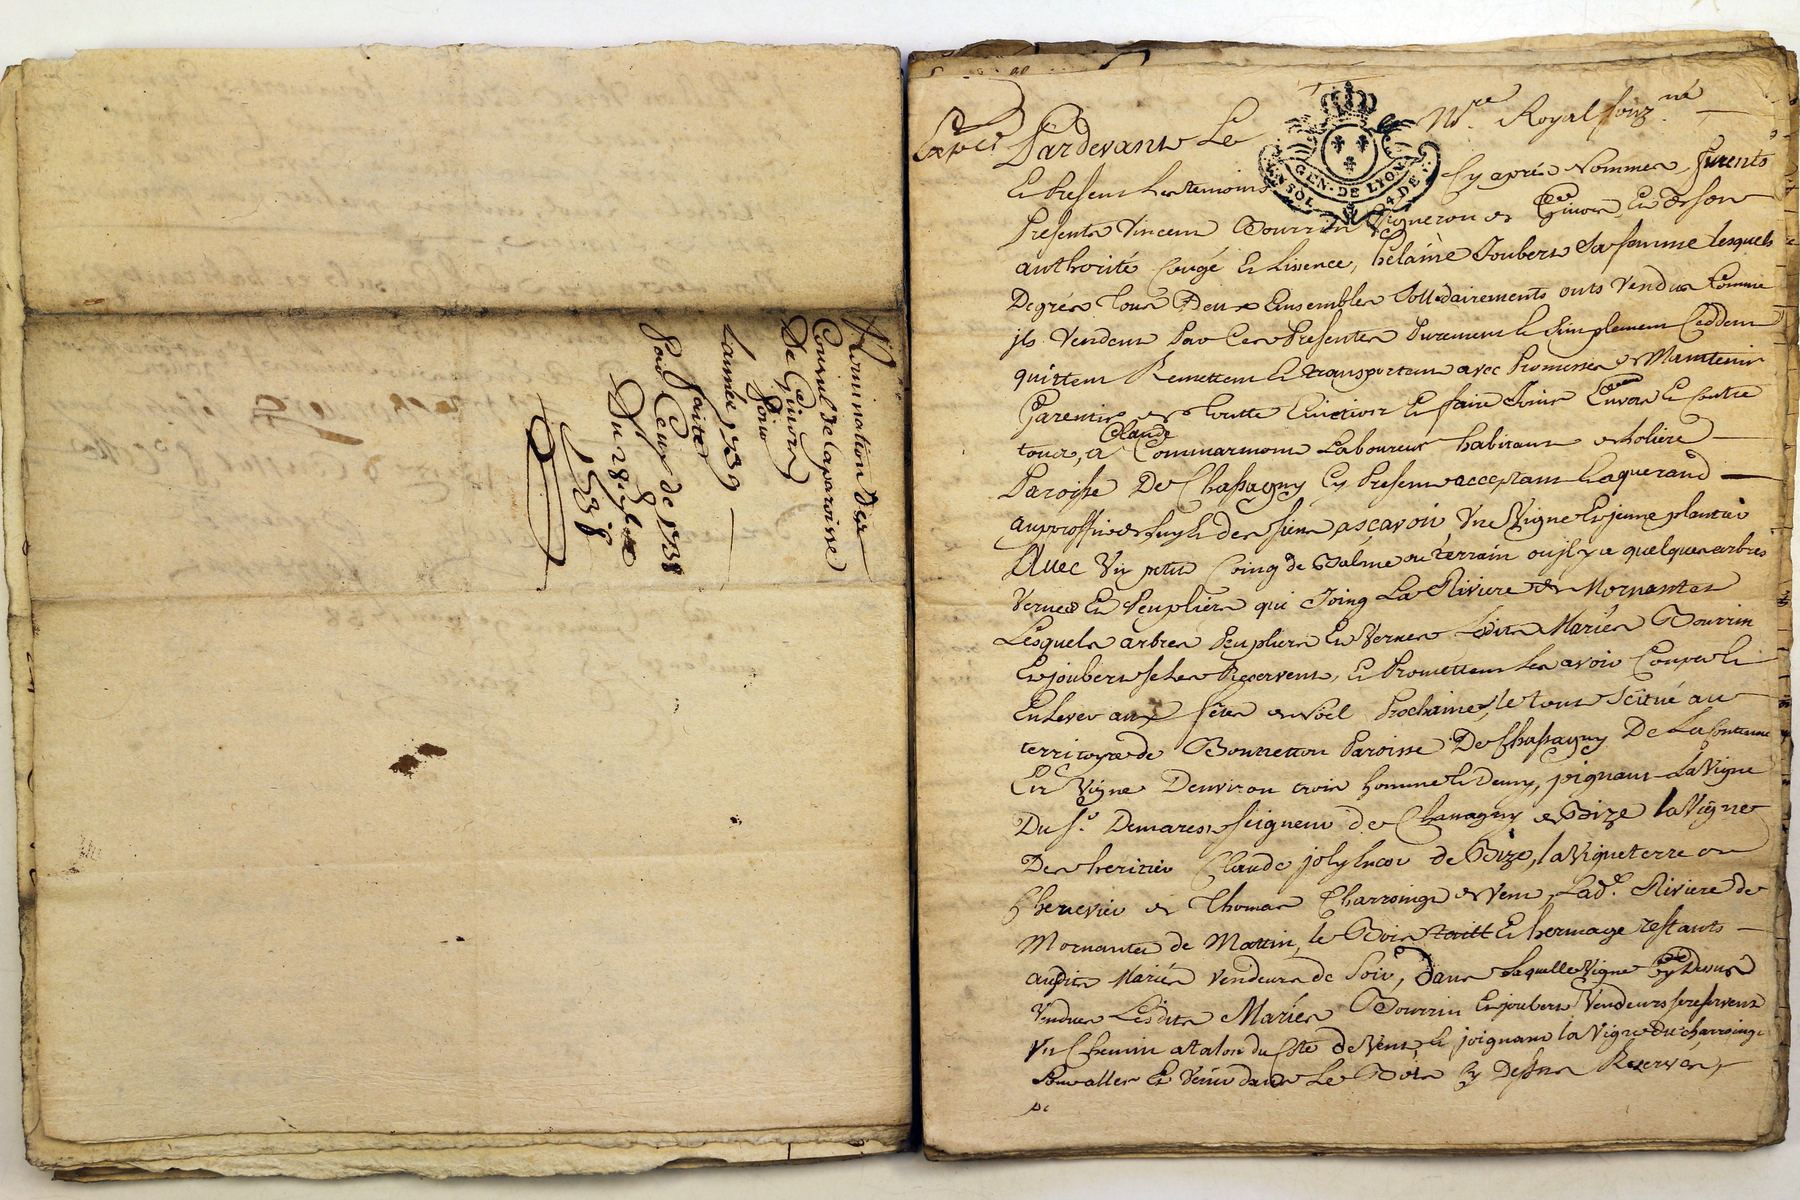 Nomination des
Consul de la paroisse
De Givors
pour
Lannée 1739
faite
par Ceux de 1738
Du 28
1738
Expe
Pardevant Le Nre Royal souz.né
GEN. DE LYON
4 DE
SOL
Et Present Les temoins Cy apres Nommes furents
Presents Vincent Bourrin Vigneron de Givors Et de son
authorité Congé Et Lisence, helaine Joubert Sa femme lesquels
Degrés tous Deux Ensembles Sollidairements onts Vendus Comme
ils Vendent Par Ces Presentes Purement Et Simplement Ceddent
quittent Remettent Et transportent avec Promesse de Maintenir
Garentir de toutte Eviction Et faire Joüir Envers Et Contre
tous, a Claude Commarmont Laboureur habitant de
Paroisse De Chassagny Cy Present acceptant Laquerand
auproffit de luy Et des siens ascavoir Une Vigne Et jeune plantier
Avec Un petit Coing de Balme ou terrain ou jl y a quelques arbres
Vernes Et Peupliers qui Joing La Riviere de Mornantes
Lesquels arbres Peupliers Et Vernes Lesdits Mariés Bourrin
Et joubert se Les Reservent, Et Promettent Les avoir Coupes Et
Enlever aux fêtes de Noël Prochaines, le tout Scitué au
territoyre de Bonnetton Paroisse De Chassagny De La Contenue
En Vigne Denviron trois hommes Et Demy, joignant La Vigne
Du Sr. Demarest seigneur de Chassagny de Bize la Vigne
Des heritiers Claude joly de Bize, la Vigne terre ou
Chenevier de Thomas Charroinge de Vent, Lad.e Riviere de
Mornantes de Matin, le Bois taillt Et hermage restants
audits Mariés Vendeurs de Soir, Dans Laquelle Vigne Cy Dessus
Vendues Lesdits Mariés Bourrin Et joubert Vendeurs se reservent
Un Chemin a talon du Côté de Vent, Et joignant la Vigne du Charroinge
Pour aller Et Venir dans Le Bois Cy Dessus Reserver